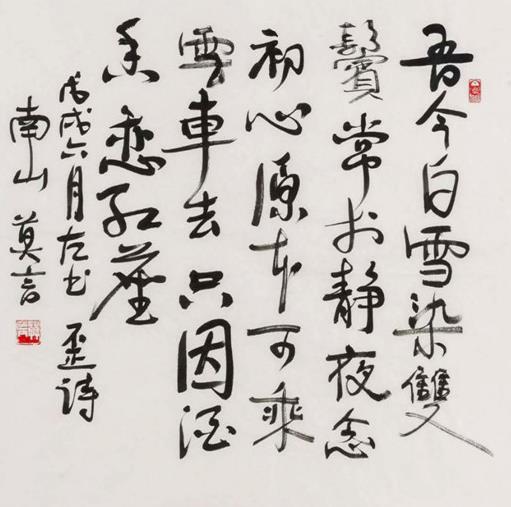 吾今白雪染雙
鬢常於静夜念
初心原本可乘
雲車去只因酒
香恋红塵
戊戌六月左书 歪詩
南山 莫言